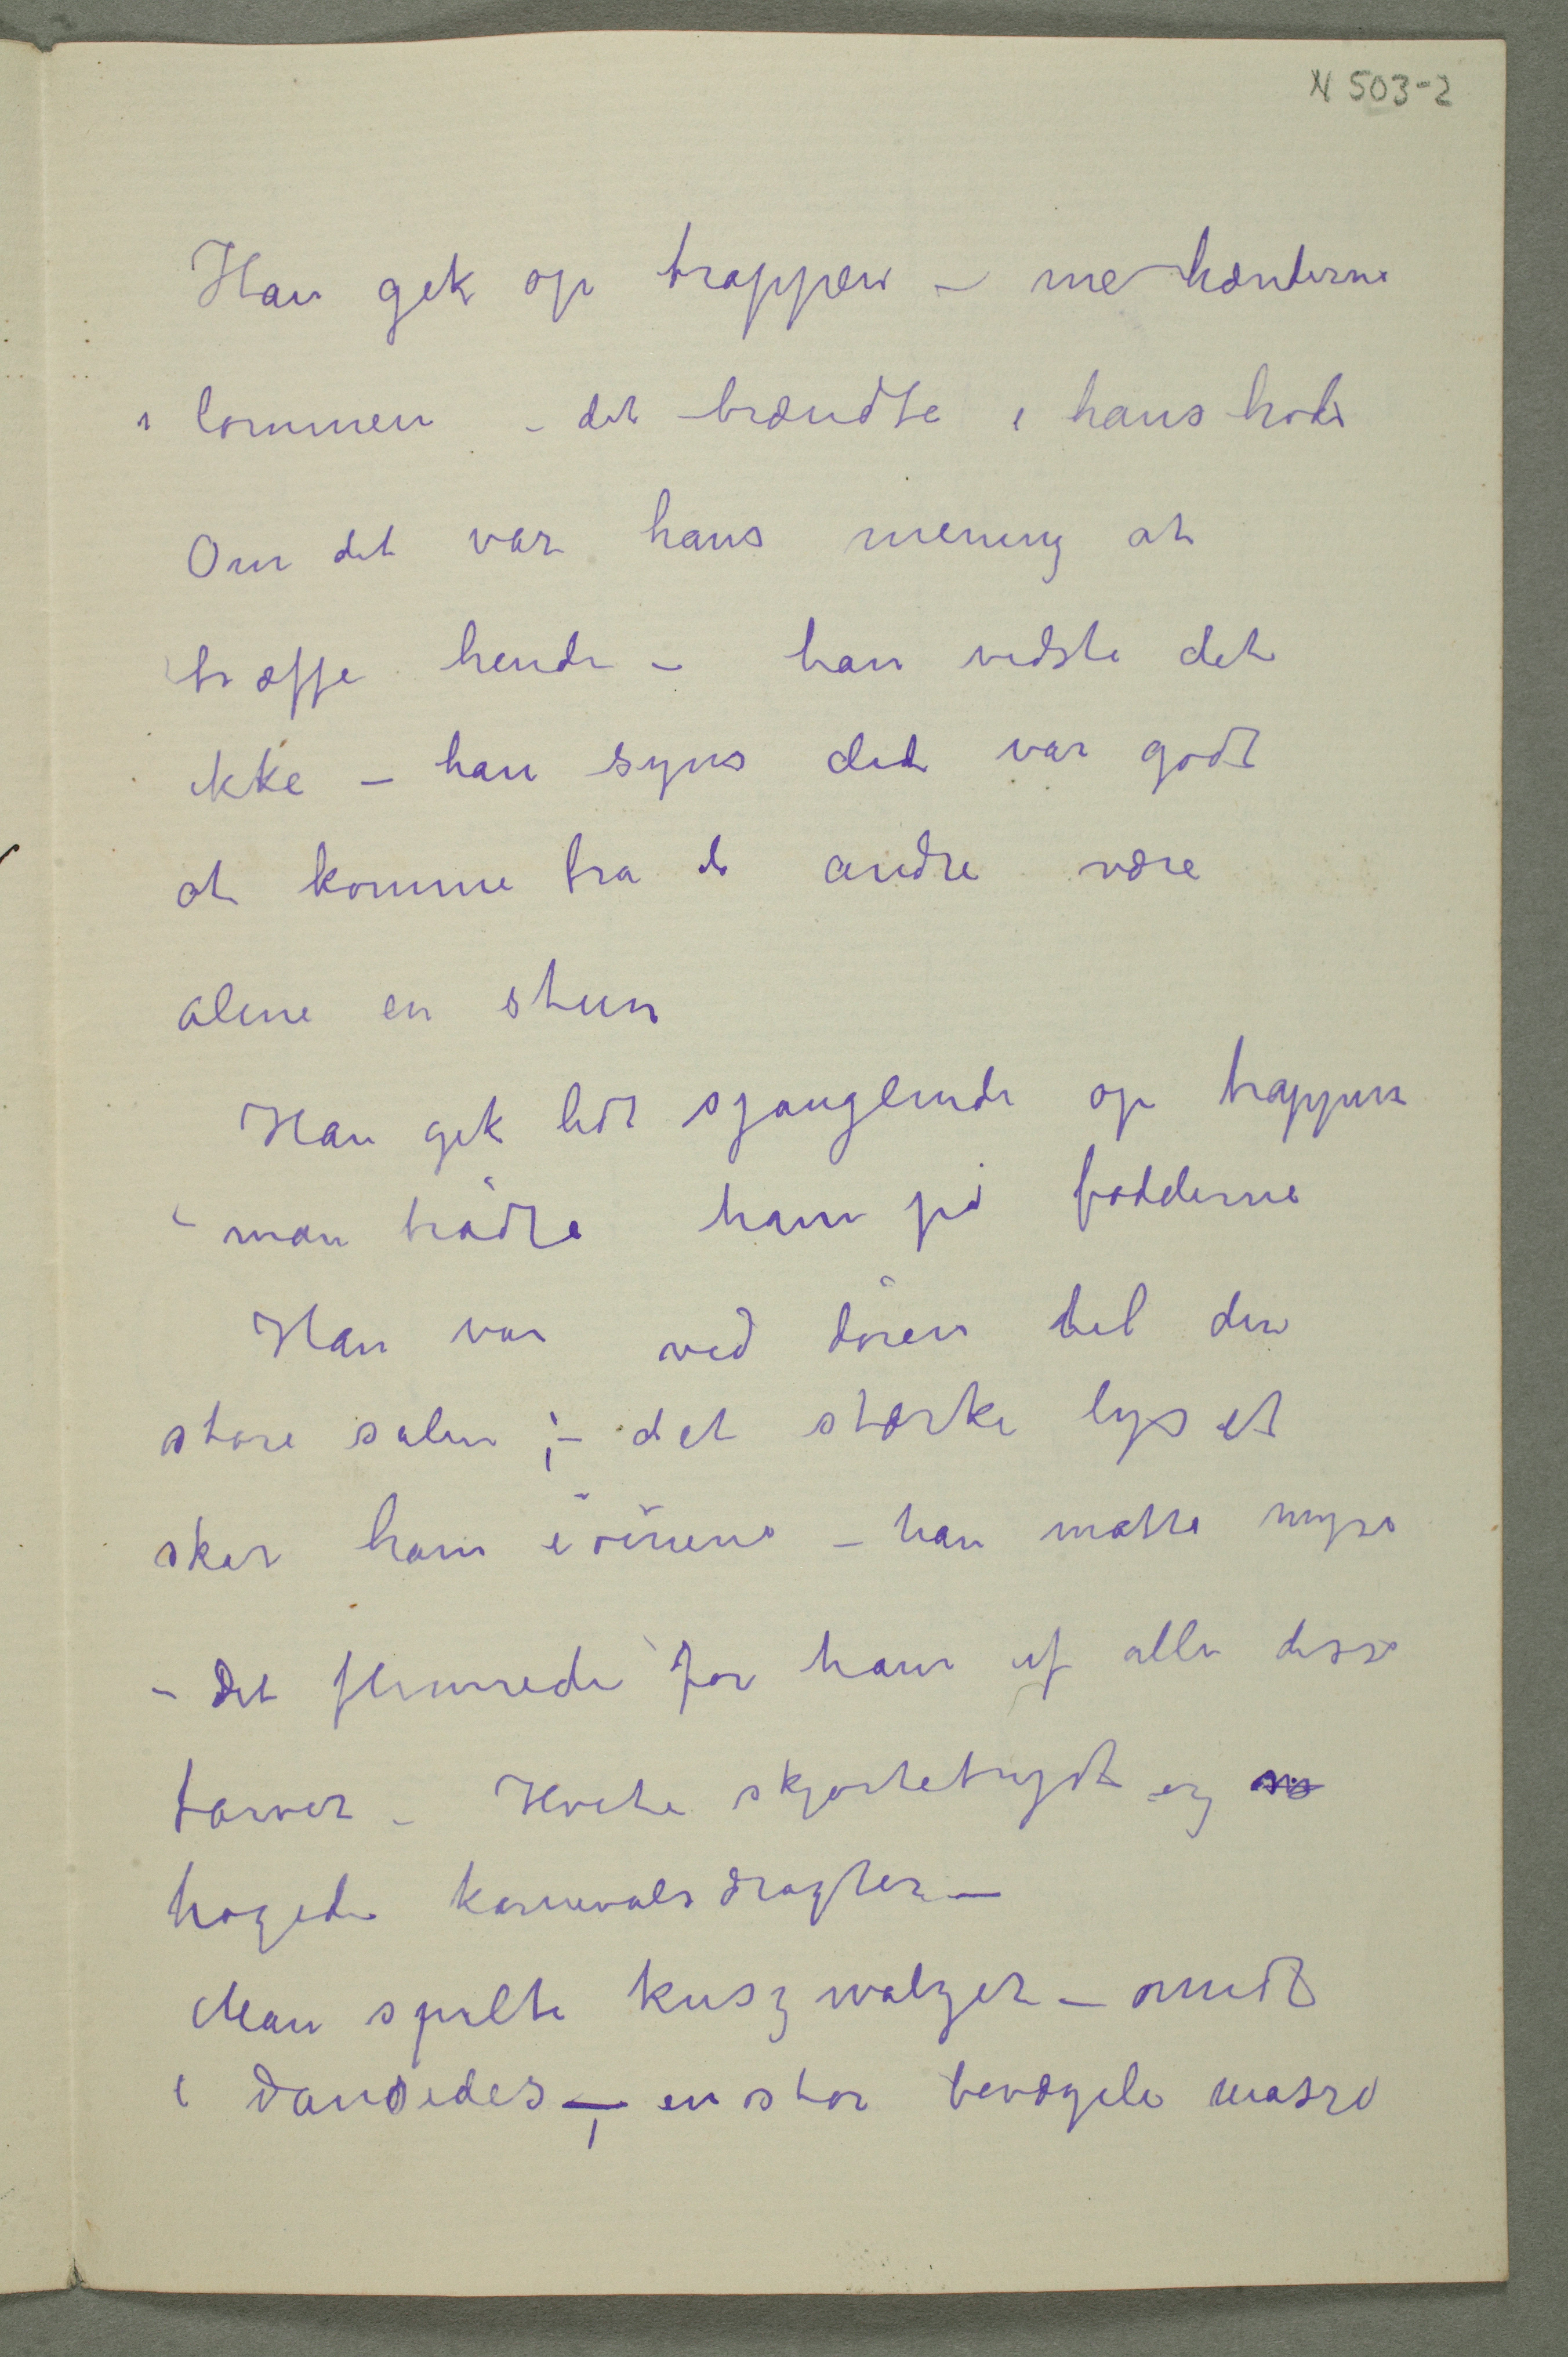 N 503-2
Han gek op trappen – me hænderne
i lommen – det brændte i hans hode
Om det var hans mening at
træffe hende – han vidste det
ikke – han syns det var godt
at komme fra de andre være
alene en stun
Han gek lidt sjanglende op trappen
– man trådte ham på fødderne
Han var ved døren til den
store salen ;– det stærke lyset
skar ham i øinene – han måtte myse
– Det flimrede for ham af alle disse
farver – Hvite skjortebryst og
brogede karnevalsdragter –
Man spilte kuszwalzer – omidt
i dansedes –, en stor bevægele masse